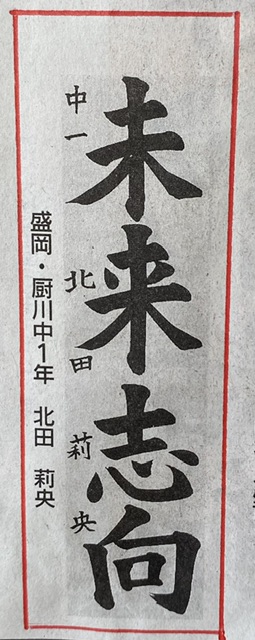 未来志向
中一 北田莉央
盛岡・厨川中1年 北田 莉央